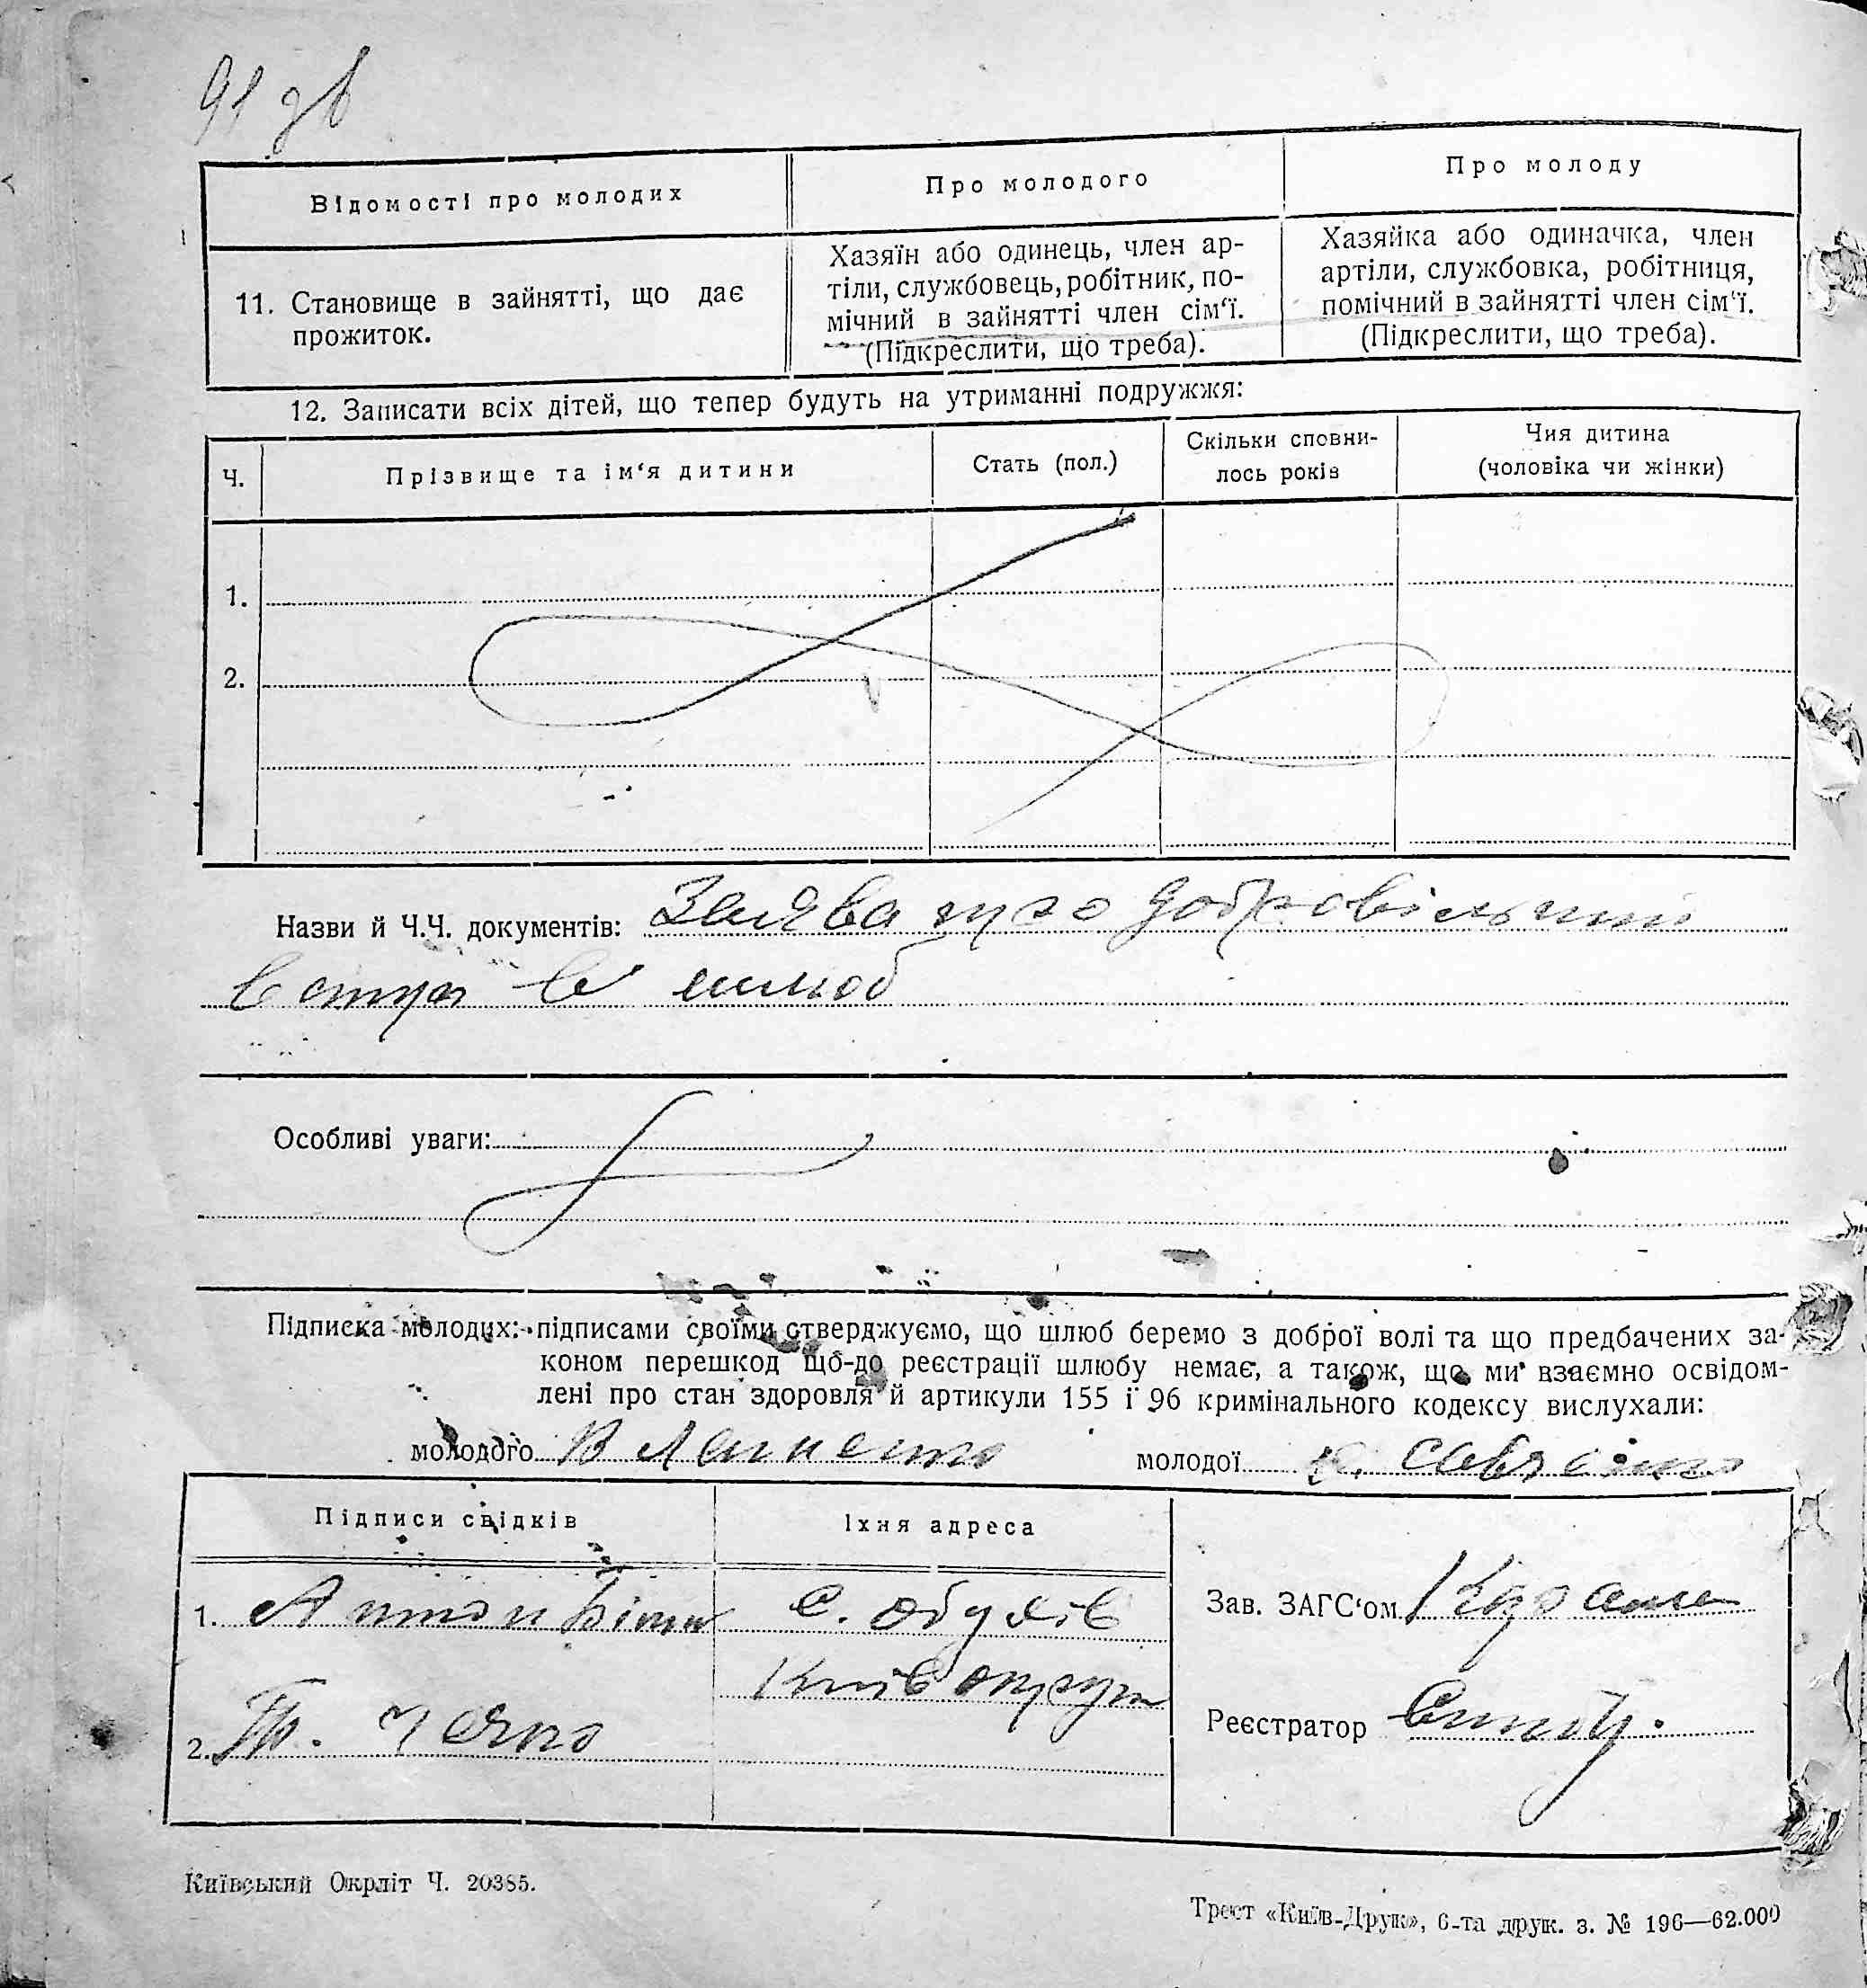 91 зв
Відомості про молодих
Про молодого
Про молоду
11. Становище в зайнятті, що дає
прожиток.
Хазяїн або одинець, член ар-
тіли, службовець, робітник, по-
мічний в зайнятті член сім‘ї.
(Підкреслити, що треба).
Хазяйка або одиначка, член
артіли, службовка, робітниця,
помічний в зайнятті член сім‘ї.
(Підкреслити, що треба).
12. Записати всіх дітей, що тепер будуть на утриманні подружжя:
Ч.
Прізвище та ім‘я дитини
Стать (пол.)
Скільки сповни-
лось років
Чия дитина
(чоловіка чи жінки)
1.
2.
Назви й Ч.Ч. документів: Заява про добровільний
вступ в шлюб
Особливі уваги:
Підписка молодих: підписами своїми стверджуємо, що шлюб беремо з доброї волі та що предбачених за-
коном перешкод що-до реєстрації шлюбу немає, а також, що ми взаємно освідом-
лені про стан здоровля й артикули 155 і 96 кримінального кодексу вислухали:
молодого В
молодої
Підписи свідків
Їхня адреса
1.
с. Обухів
Київ округи
2.
Зав. ЗАГС‘ом
Реєстратор
Київський Окрліт Ч. 20385.
Трест «Київ-Друк», 6-та друк. з. № 196—62.000